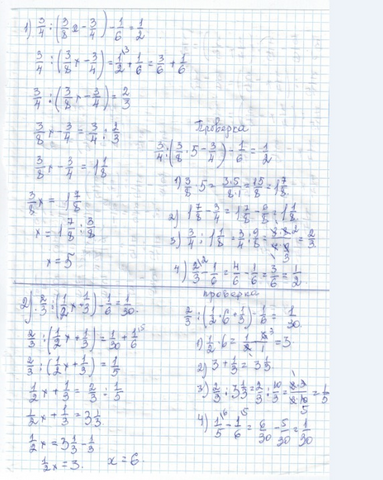 1) 3/4 : (3/8 x - 3/4) - 1/6 = 1/2
3/4 : (3/8 x - 3/4) = 1/2 ³ + 1/6 = 3/6 + 1/6
3/4 : (3/8 x - 3/4) = 2/3
3/8 x - 3/4 = 3/4 : 1/3
3/8 x - 3/4 = 1 1/8
3/8 x = 1 7/8
x = 1 7/8 : 3/8
x = 5
Проверка
3/4 : (3/8 · 5 - 3/4) - 1/6 = 1/2
1) 3/8 · 5 = 3·5/8·1 = 15/8 = 1 7/8
2) 1 7/8 - 3/4 = 1 7/8 - 6/8 = 1 1/8
3) 3/4 : 1 1/8 = 3/4 · 8/9 = 2/3
4) 2/3 ² - 1/6 = 4/6 - 1/6 = 3/6 = 1/2
2) 2/3 : (1/2 x + 1/3) - 1/6 = 1/30
2/3 : (1/2 x + 1/3) = 1/30 + 1/6 ⁵
2/3 : (1/2 x + 1/3) = 1/5
1/2 x + 1/3 = 2/3 : 1/5
1/2 x + 1/3 = 3 1/3
1/2 x = 3 1/3 - 1/3
1/2 x = 3. x = 6.
проверка
2/3 : (1/2 · 6 + 1/3) - 1/6 = 1/30
1) 1/2 · 6 = = 3
2) 3 + 1/3 = 3 1/3
3) 2/3 : 3 1/3 = 2/3 : 10/3 = = 1/5
4) 1/5 ⁶ - 1/6 ⁵ = 6/30 - 5/30 = 1/30